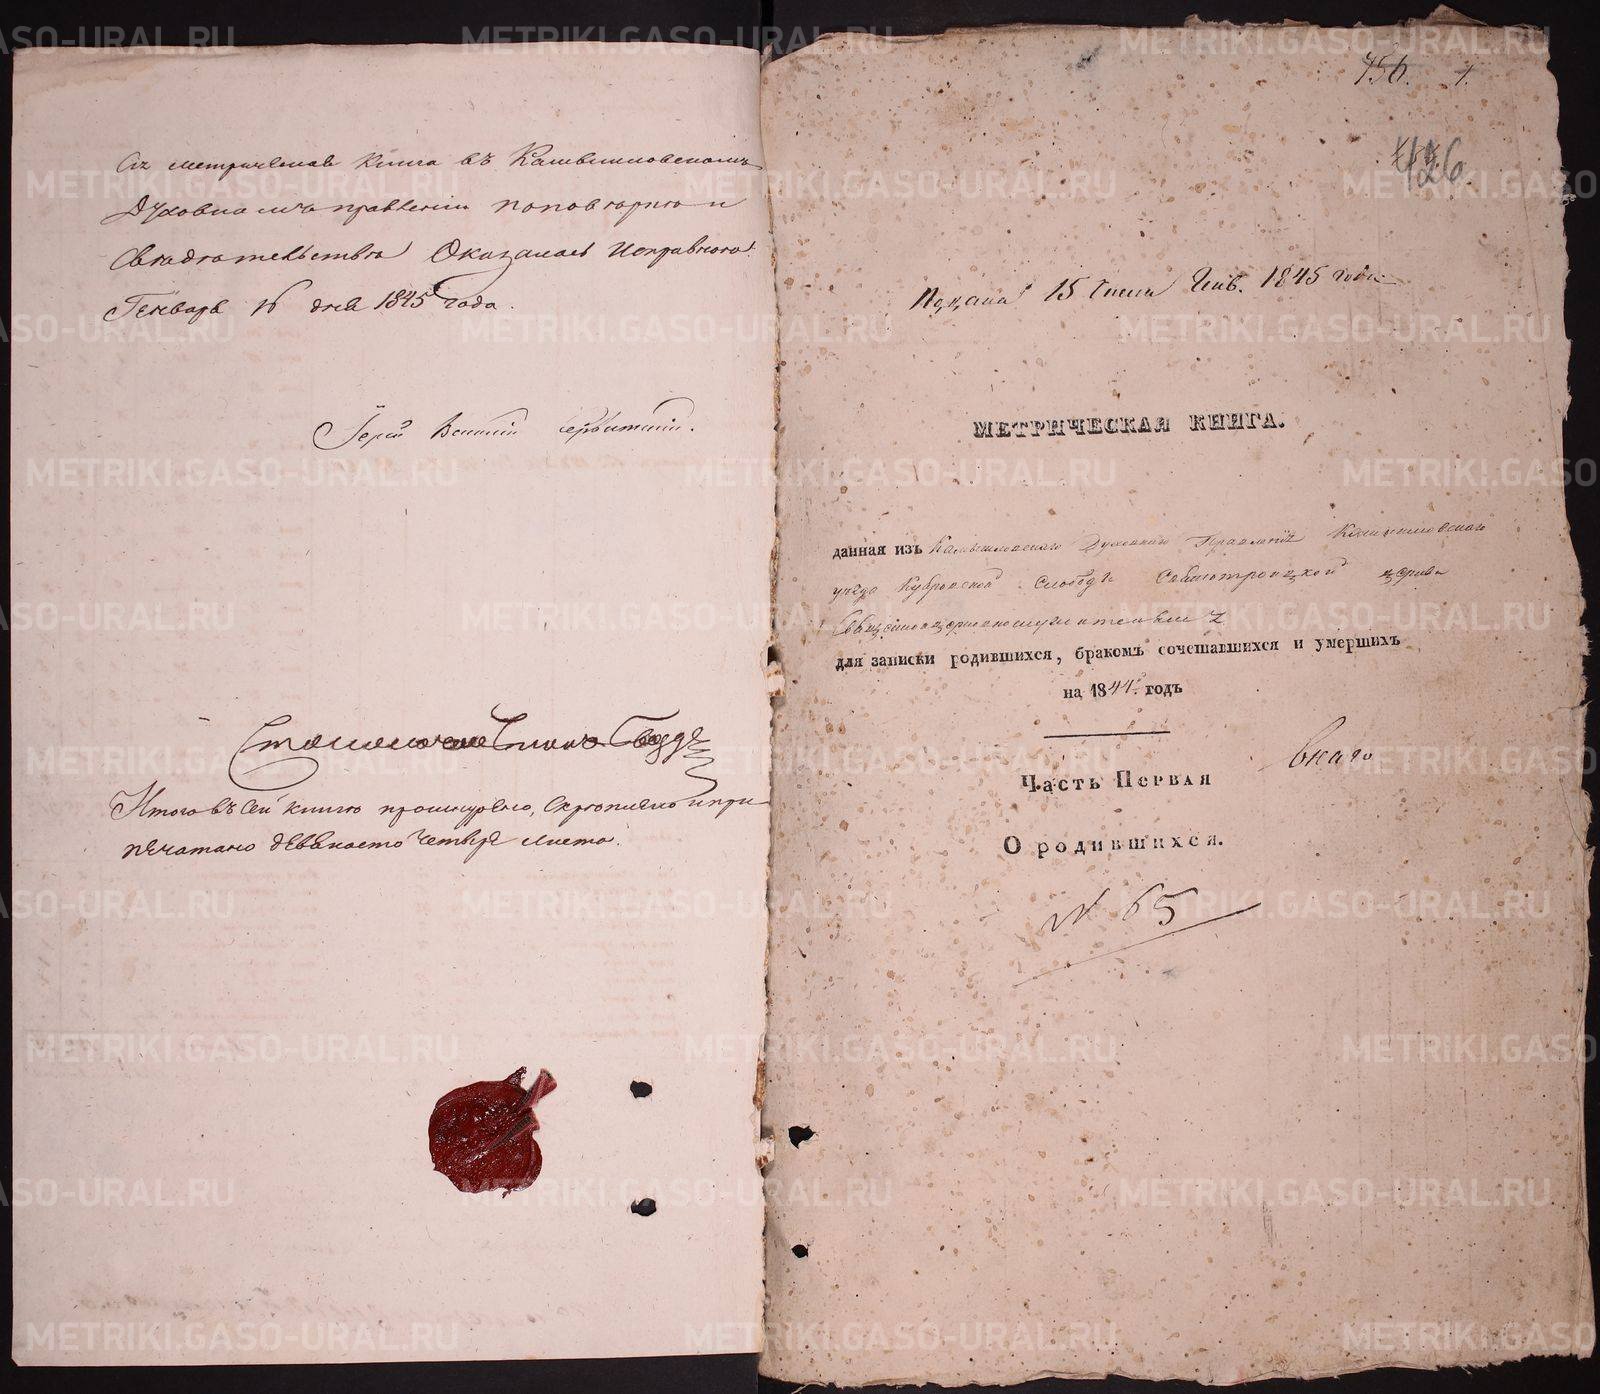 Сія метрическая книга въ Камышловскомъ
Духовномъ правленіи по повѣркѣ и
свидѣтельствѣ оказалась исправною.
Генваря 16 дня 1845 года.
Іерей
Итого въ сей книгѣ прошнуровано, скрѣплено и при
печатано девяносто четыре листа.
456. 1.
426
Подана 15 Генв. 1845 года
МЕТРИЧЕСКАЯ КНИГА.
данная изъ Камышловскаго Духовнаго Правленія Камышловскаго
уѣзда слободы Святотроицкой церкви
Священноцерковнослужителямъ
для записки родившихся, бракомъ сочетавшихся и умершихъ
на 1844. годъ
Часть Первая
О родившихся.
№ 65
METRIKI.GASO-URAL.RU